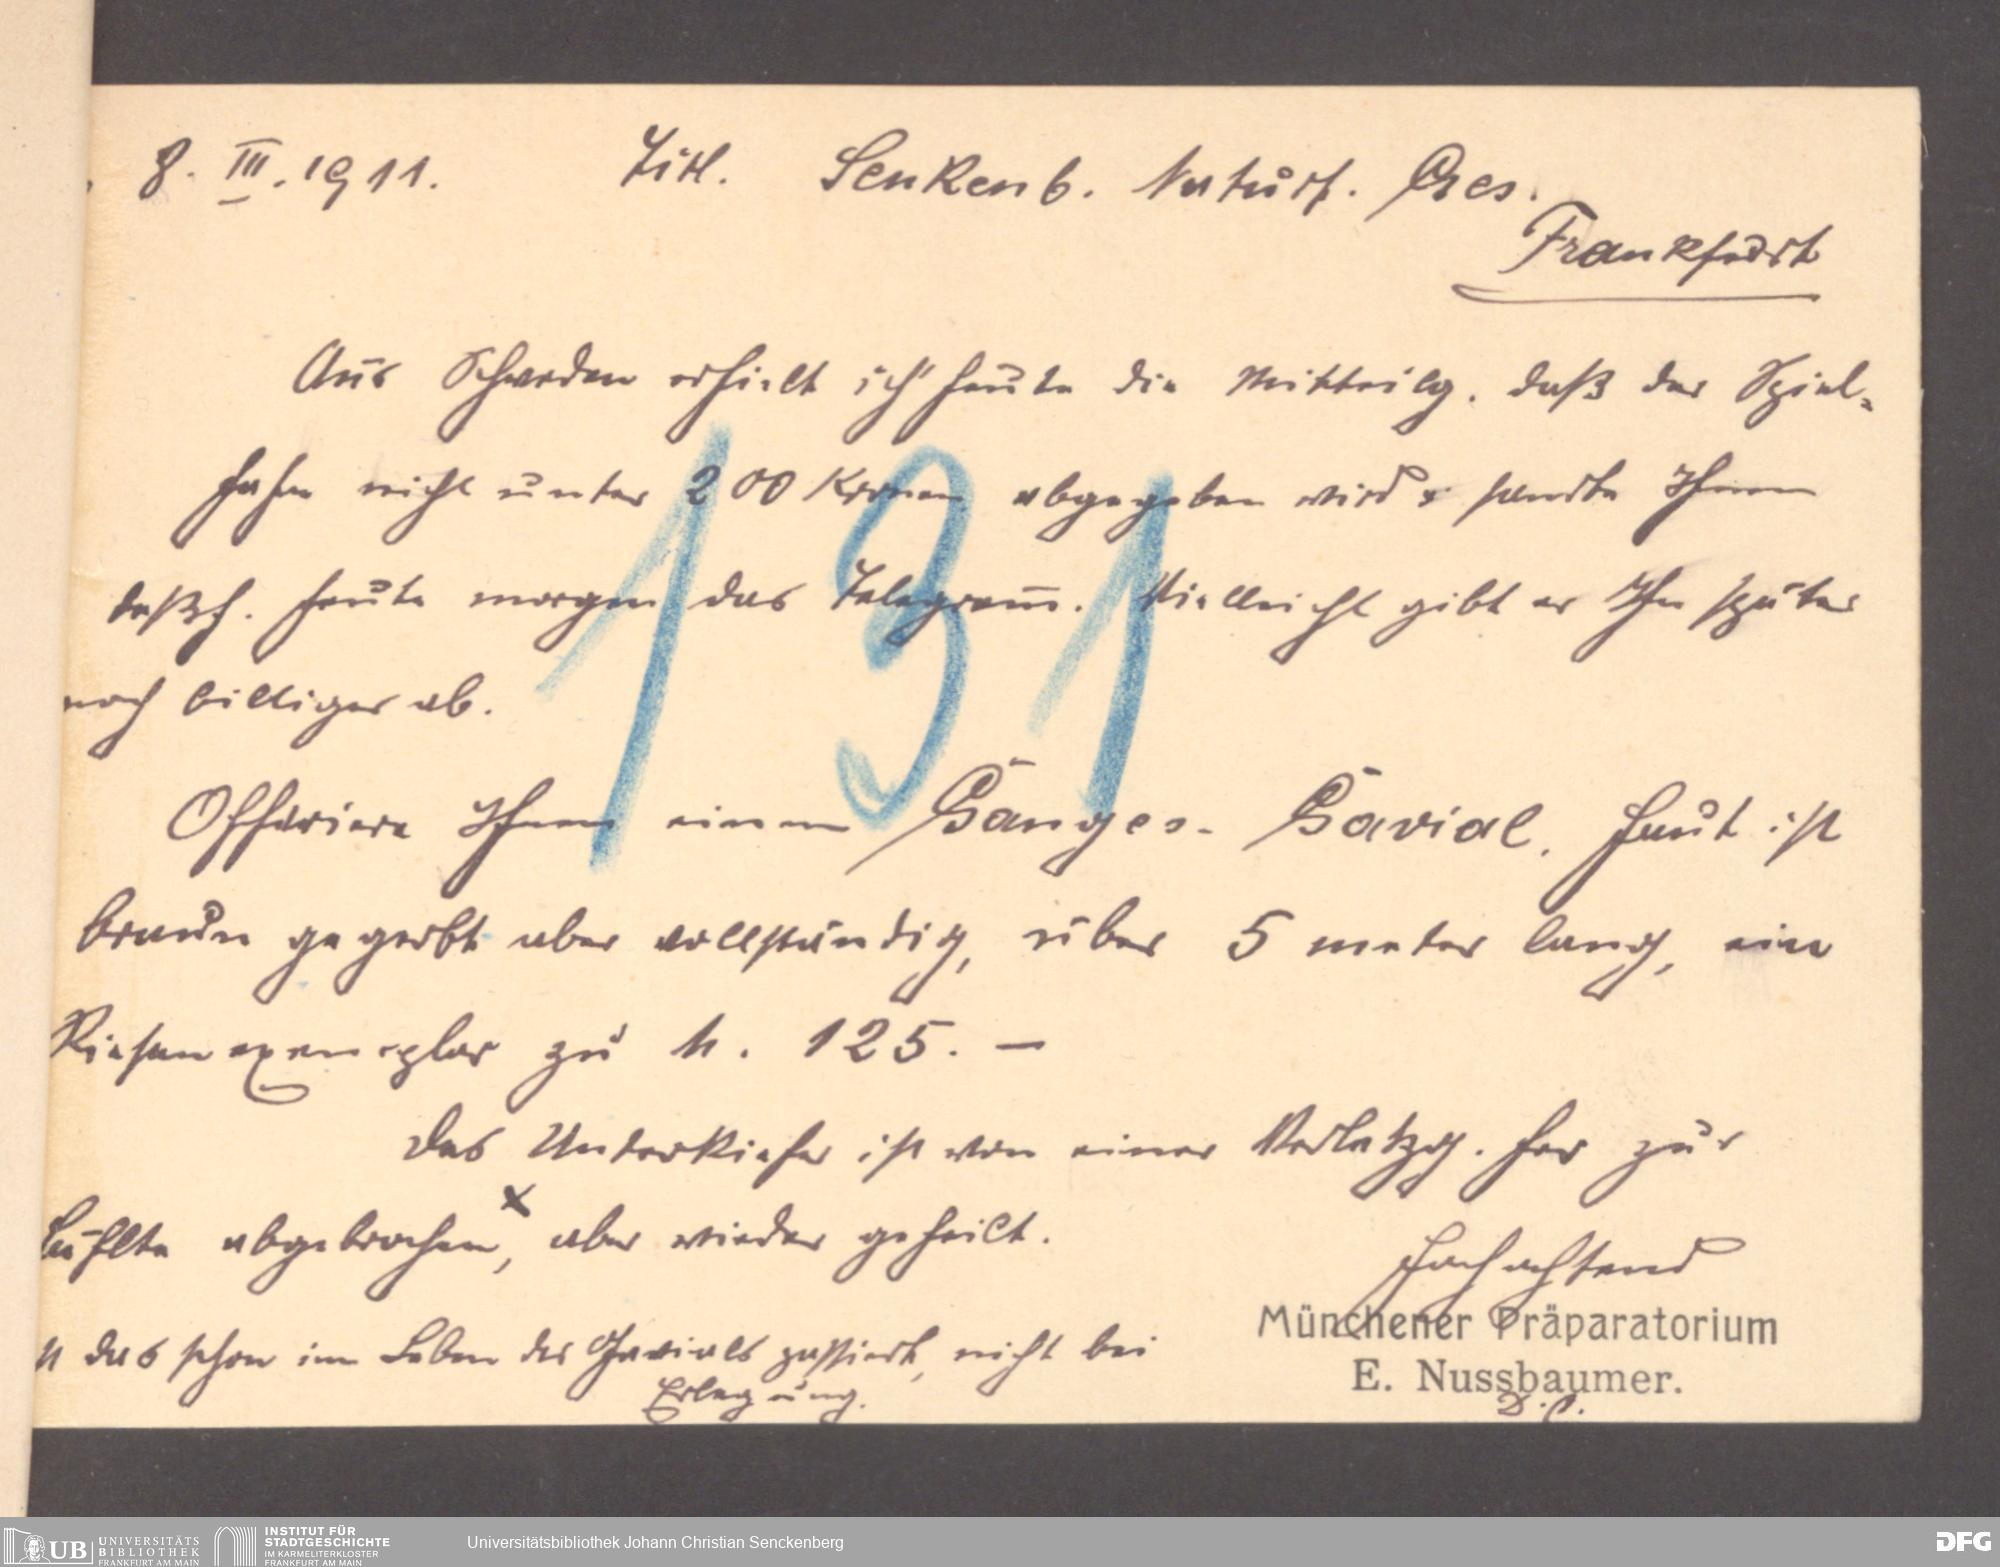 8. III. 1911. Titl. Senkenb. Naturf. Ges.
Frankfurt
Aus Schweden erhielt ich heute die Mitteilg. daß der Spiel-
hahn nicht unter 200 Kronen abgegeben wird & sandte Ihnen
deßh. heute morgen das Telegram̅. Vielleicht gibt er Ihn später
noch billiger ab.
131
Offeriere Ihnen einen Ganges-Gavial. Haut ist
braun gegerbt aber vollständig, über 5 meter lang, ein
Riesenexemplar zu M. 125.—
Der Unterkiefer ist von einer Verletzg. her zur
Hälfte abgebrochen x, aber wieder geheilt.
Hochachtend
Münchener Präparatorium
E. Nussbaumer.
D. O.
das schon im Leben des Gavials passiert, nicht bei
Erlegung.
UB UNIVERSITÄTS
BIBLIOTHEK
FRANKFURT AM MAIN
INSTITUT FÜR
STADTGESCHICHTE
IM KARMELITERKLOSTER
FRANKFURT AM MAIN
Universitätsbibliothek Johann Christian Senckenberg
DFG